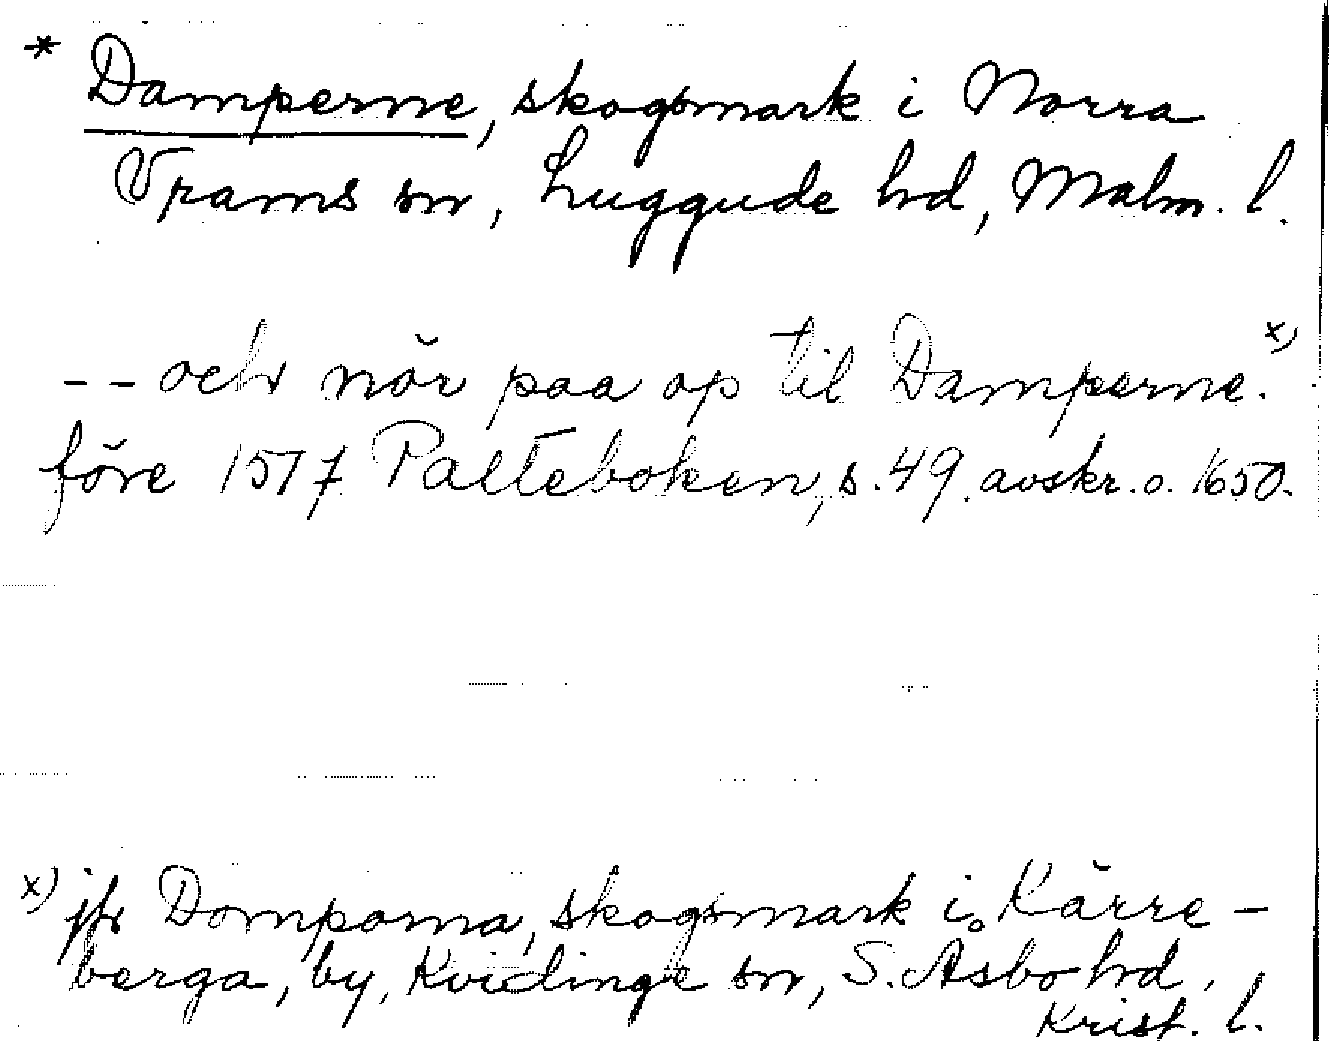 * Damperne, skogsmark i Norra
Vrams sn, Luggude hd, Malm. l.
-- och nör paa op til Damperne. x)
före 1577 Palteboken, s. 49. avskr. o. 1650.
x) jfr Domporna, skogsmark i Kärre-
berga, by, Kvidinge sn, S. Åsbo hd,
Krist. l.